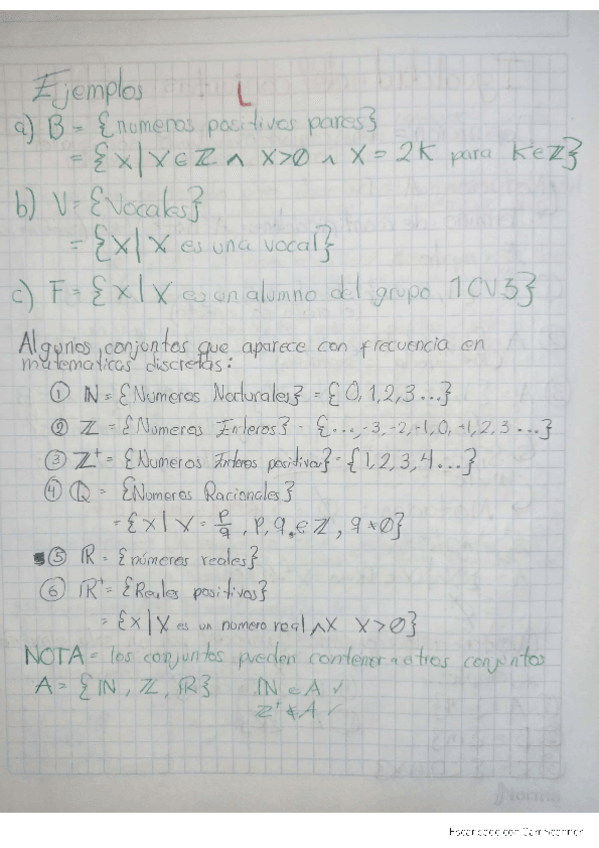 Ejemplos
a) B = {numeros positivos pares}
= {X | X ∈ ℤ ∧ X>0 ∧ X = 2K para K∈ℤ}
b) V = {Vocales}
= {X | X es una vocal}
c) F = {X | X es un alumno del grupo 1CV3}
Algunos conjuntos que aparece con frecuencia en
matematicas discretas:
① ℕ = {Numeros Naturales} = {0, 1, 2, 3 ...}
② ℤ = {Numeros Enteros} = {..., -3, -2, -1, 0, -1, 2, 3 ...}
③ ℤ⁺ = {Numeros Enteros positivos} = {1, 2, 3, 4 ...}
④ ℚ = {Numeros Racionales}
= {X | X = p/q, p, q, ∈ ℤ, q ≠ 0}
⑤ ℝ = {números reales}
⑥ ℝ⁺ = {Reales positivos}
= {X | X es un numero real ∧ X X>0}
NOTA = los conjuntos pueden contener a otros conjuntos
A = {ℕ, ℤ, ℝ} ℕ ∈ A ✓
ℤ⁺ ∉ A ✓
Escaneado con CamScanner